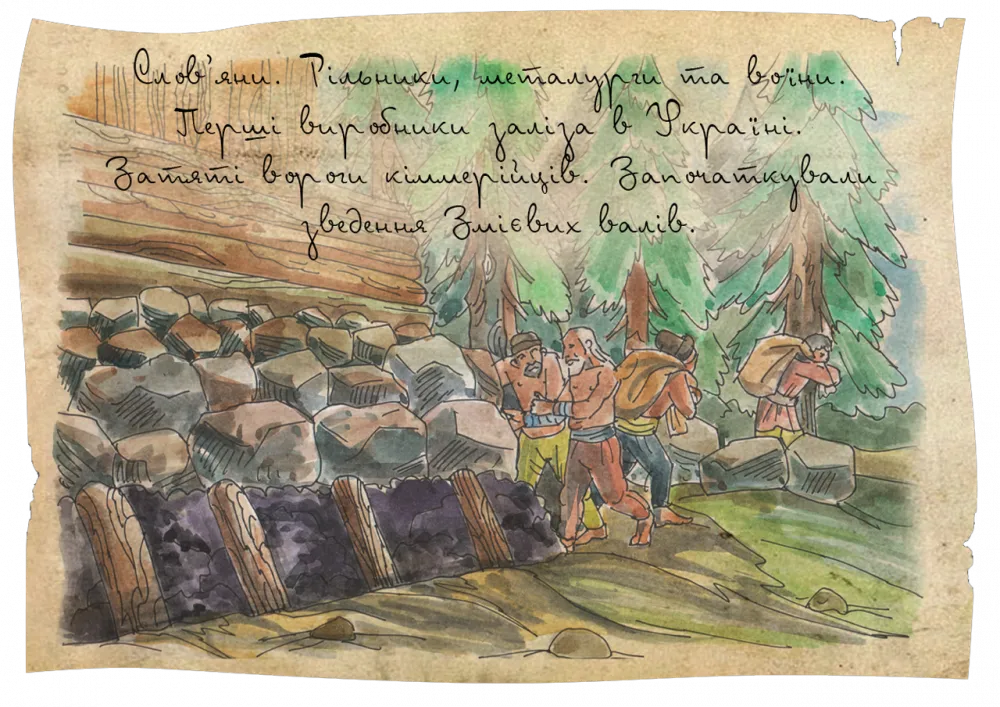 Слов'яни. Рільники, металурги та воїни.
Перші виробники заліза в Україні.
Затяті вороги кіммерійців. Започаткували
зведення Змієвих валів.